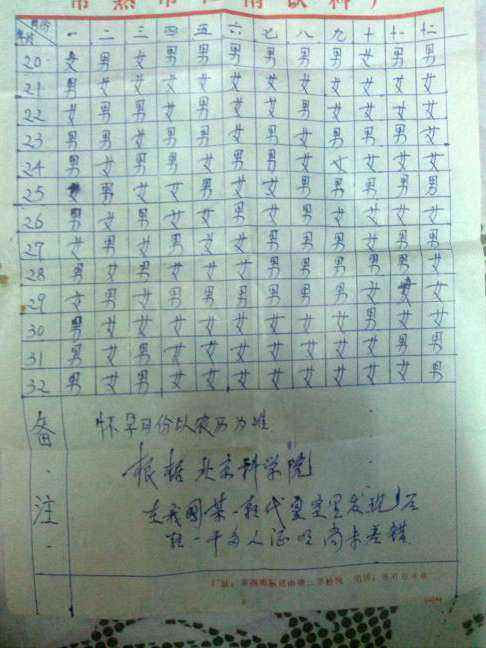 常熟市 情饮料厂
月份 一 二 三 四 五 六 七 八 九 十 十一 十二
年龄
20 女 男 女 男 男 男 男 男 男 女 男 男
21 男 女 女 女 女 女 女 女 女 女 女 女
22 女 男 男 女 男 女 女 男 女 女 女 女
23 男 男 女 男 男 女 男 女 男 男 男 女
24 男 女 男 男 女 男 男 女 女 女 女 女
25 女 男 女 女 男 女 女 男 男 男 男 男
26 男 女 男 女 女 男 女 男 女 女 女 女
27 女 男 女 男 女 女 男 男 男 女 男 男
28 男 女 男 女 女 女 男 男 男 男 男 女
29 女 男 女 男 男 男 男 男 男 女 女
30 男 女 女 女 女 女 女 女 女 男 女 女
31 男 女 男 女 女 女 女 女 女 女 男 男
32 男 女 男 女 女 女 女 女 女 女 女 男
备注
怀孕月份以农历为准
根据北京科学院
在我国某一朝代皇室里发现后
经一千多人证明尚未差错
厂址：常熟市